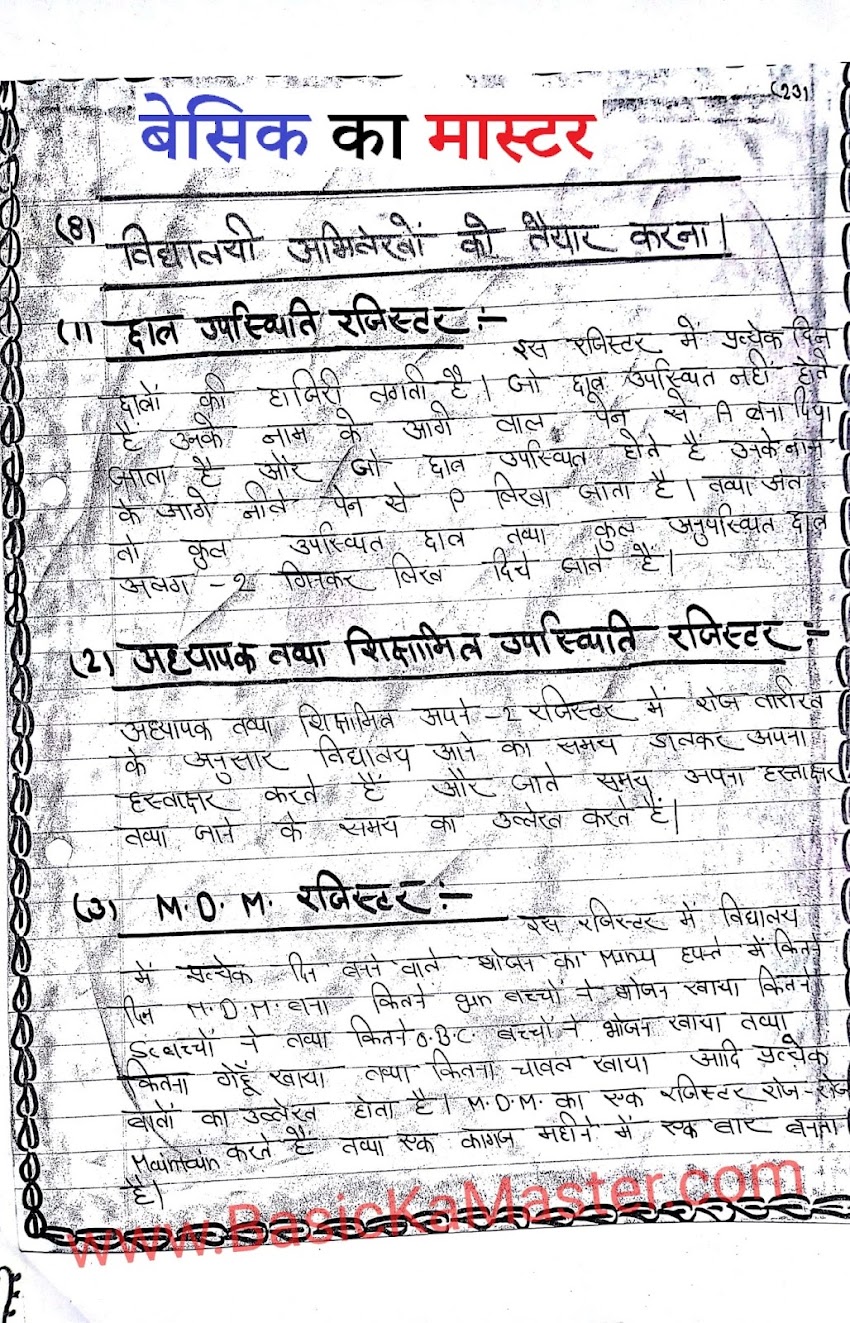 (23)
बेसिक का मास्टर
(8) विद्यालयी अभिलेखों को तैयार करना।
(1) छात्र उपस्थिति रजिस्टर :-
इस रजिस्टर में प्रत्येक दिन
छात्रों की हाजिरी लगती है। जो छात्र उपस्थित नहीं होते
है उनके नाम के आगे लाल पेन से A बना दिया
जाता है और जो छात्र उपस्थित होते हैं उनके नाम
के आगे नीले पेन से P लिखा जाता है। तथा अंत
तो कुल उपस्थित छात्र तथा कुल अनुपस्थित छात्र
अलग -2 गिनकर लिख दिये जाते हैं।
(2) अध्यापक तथा शिक्षामित्र उपस्थिति रजिस्टर :-
अध्यापक तथा शिक्षामित्र अपने -2 रजिस्टर में रोज तारीख
के अनुसार विद्यालय आने का समय डालकर अपना
हस्ताक्षर करते हैं और जाते समय अपना हस्ताक्षर
तथा जाने के समय का उल्लेख करते हैं।
(3) M.D.M. रजिस्टर :-
इस रजिस्टर में विद्यालय
में प्रत्येक दिन बनने वाले भोजन का Manu हफ्ते में कितने
दिन M.D.M. बना कितने gen बच्चों ने भोजन खाया कितने
Sc बच्चों ने तथा कितने O.B.C. बच्चों ने भोजन खाया तथा
कितना गेहूँ खाया तथा कितना चावल खाया आदि प्रत्येक
बातों का उल्लेख होता है। M.D.M. का एक रजिस्टर रोज-रोज
Maintain करते हैं तथा एक कागज महीने में एक बार बनता
है।
www.BasicKaMaster.com